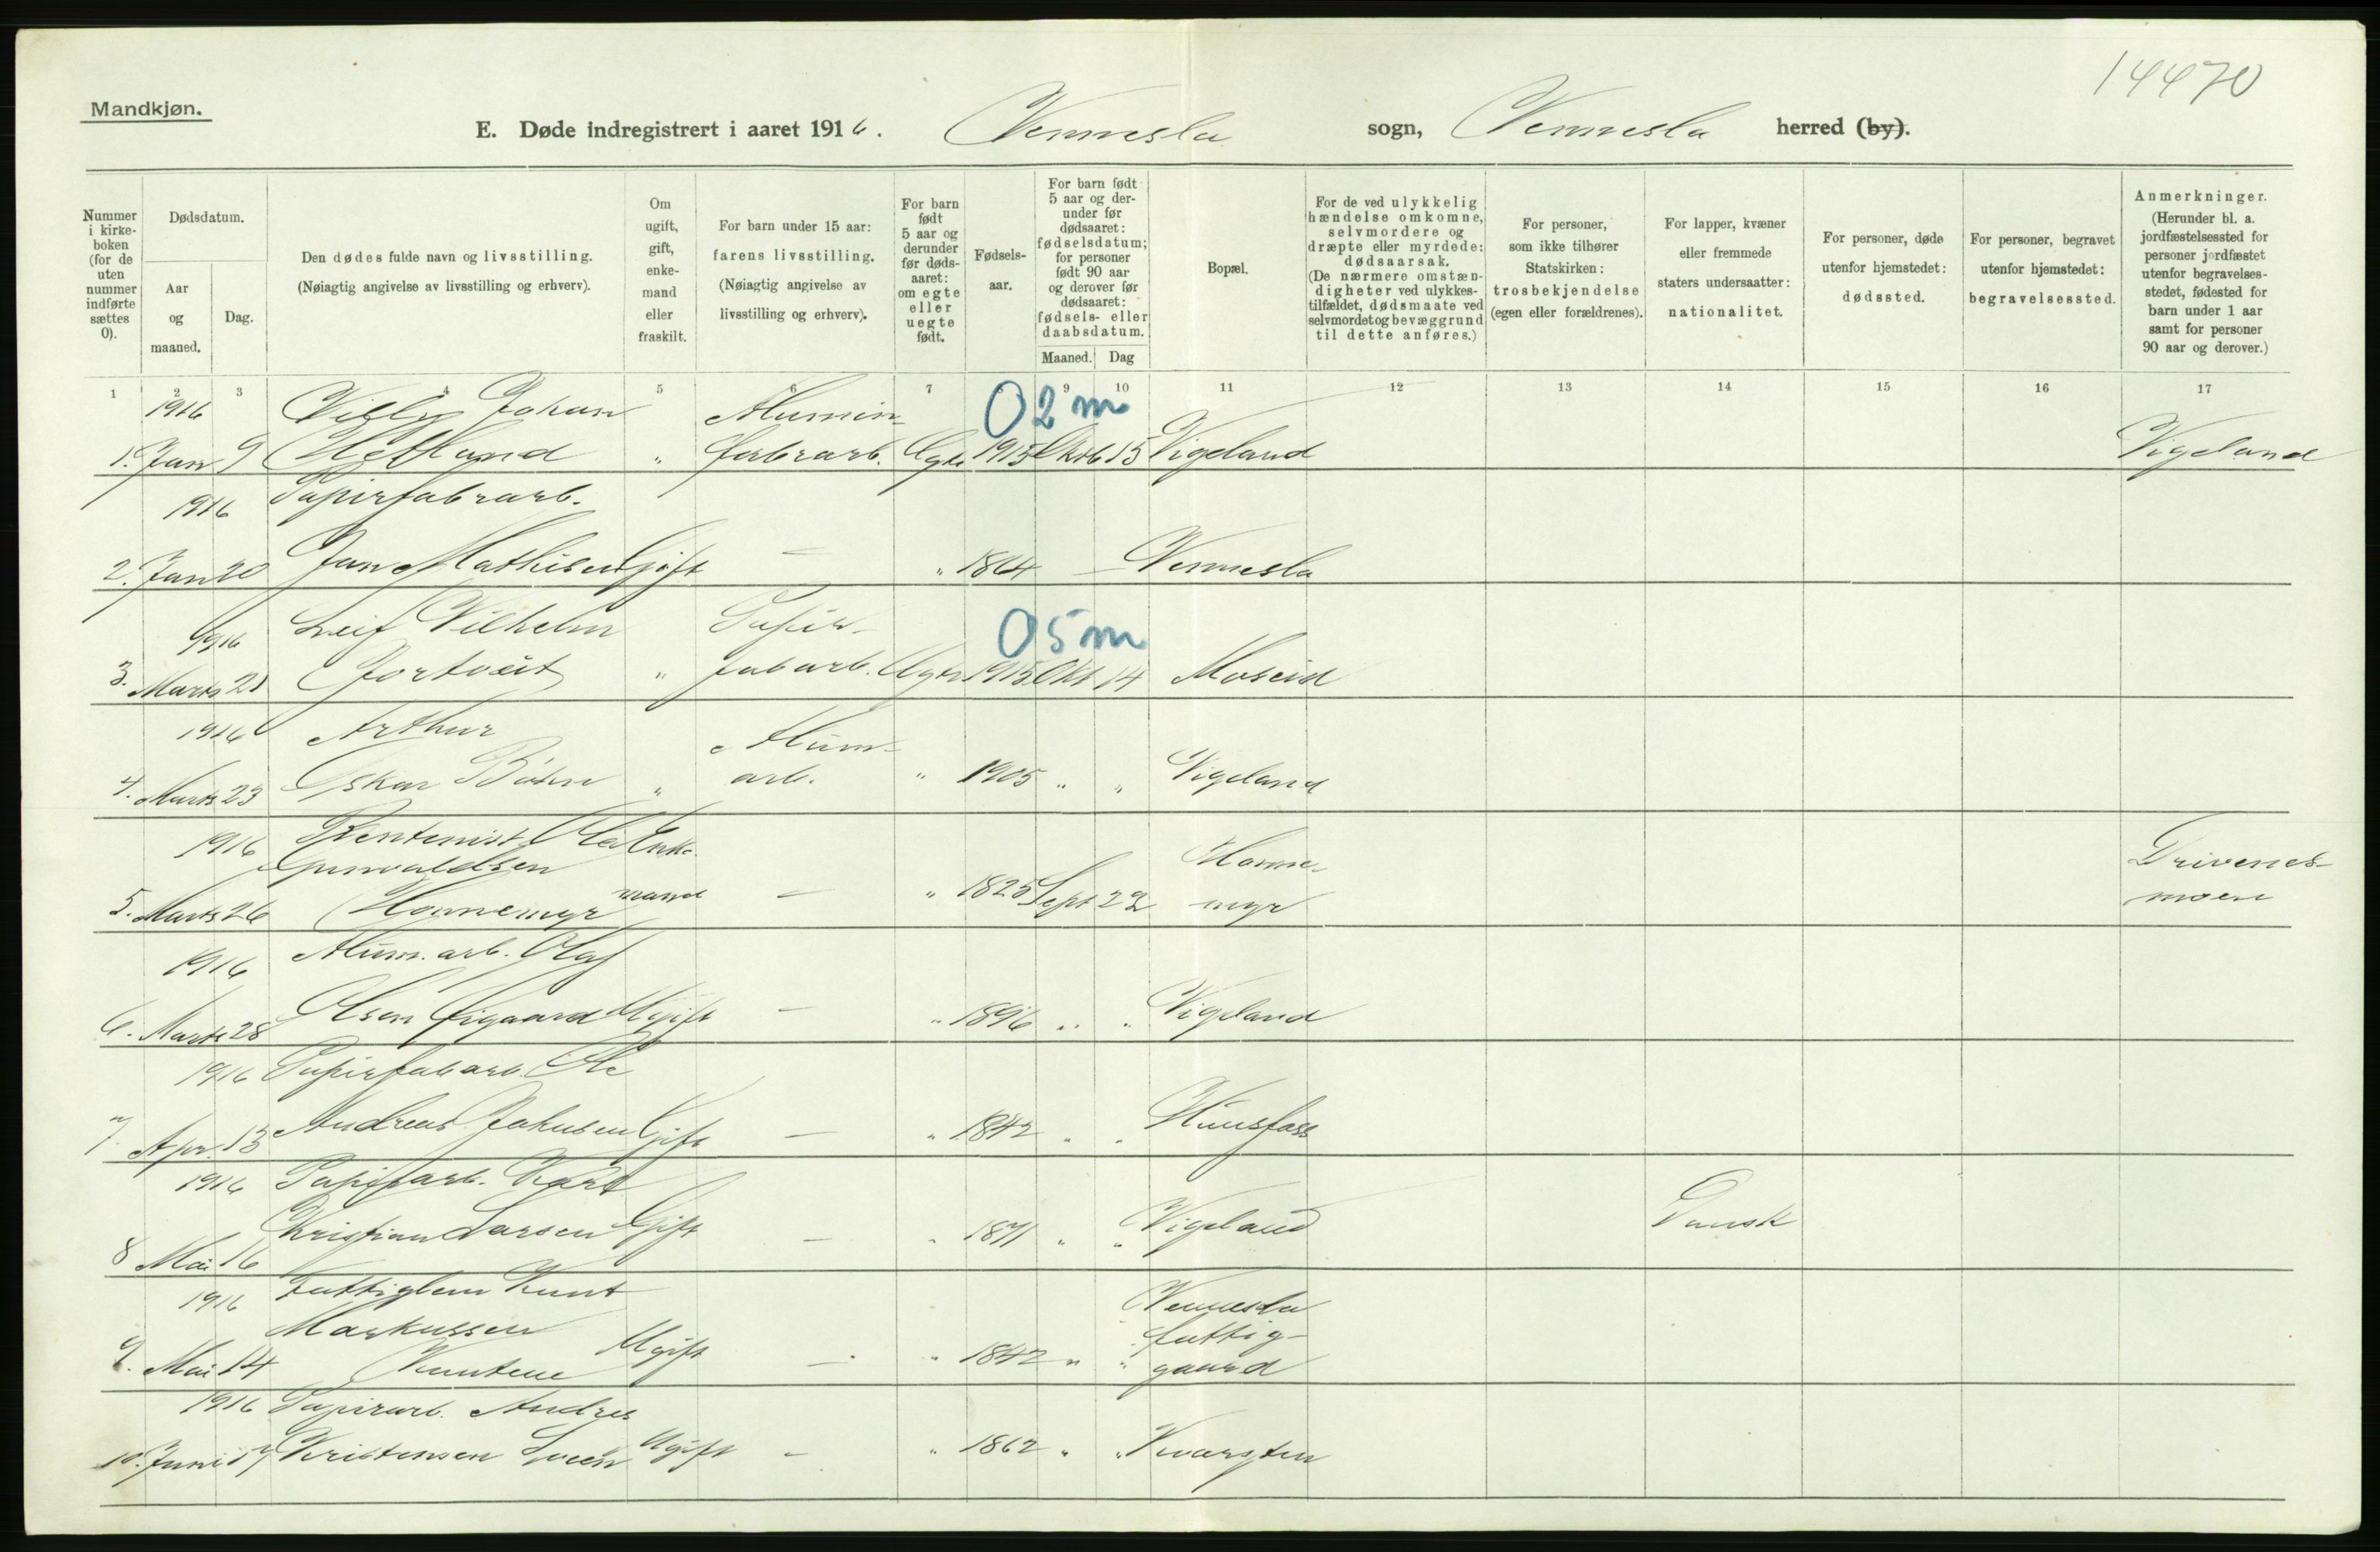 14470
Mandkjøn.
E. Døde indregistrert i aaret 1916. Vennesla sogn, Vennesla herred (by).
Nummer i kirke-boken (for de uten nummer indførte sættes 0).
Dødsdatum.
Aar og maaned.
Dag.
Den dødes fulde navn og livsstilling. (Nøiagtig angivelse av livsstilling og erhverv).
Om ugift, gift, enke-mand eller fraskilt.
For barn under 15 aar: farens livsstilling. (Nøiagtig angivelse av livsstilling og erhverv).
For barn født 5 aar og derunder før døds-aaret: om egte eller uegte født.
Fødsels-aar.
For barn født 5 aar og der-under før dødsaaret: fødselsdatum; for personer født 90 aar og derover før dødsaaret: fødsels- eller daabsdatum.
Maaned. Dag
Bopæl.
For de ved ulykkelig hændelse omkomne, selvmordere og dræpte eller myrdede: dødsaarsak. (De nærmere omstæn-digheter ved ulykkes-tilfældet, dødsmaate ved selvmordet og bevæggrund til dette anføres.)
For personer, som ikke tilhører Statskirken: trosbekjendelse (egen eller forældrenes).
For lapper, kvæner eller fremmede staters undersaatter: nationalitet.
For personer, døde utenfor hjemstedet: dødssted.
For personer, begravet utenfor hjemstedet: begravelsessted.
Anmerkninger. (Herunder bl. a. jordfæstelsessted for personer jordfæstet utenfor begravelses-stedet, fødested for barn under 1 aar samt for personer 90 aar og derover.)
1 2 3 4 5 6 7 8 9 10 11 12 13 14 15 16 17
1916 Villy Johan Alumin- 02 m
1. Jan 9 " fabrarb. Egte 1915 Oktb 15 Vigeland Vigeland
1916 Papirfabrarb.
2. Jan 20 Jan Mathisen Gift — " 1864 — Vennesla
1916 Leif Vilhelm Papir- 05 m
3. Marts 21 " fabarb. Ugte 1915 Okt 14 Moseid
1916 Arthur Alum-
4. Marts 23 Oskar " arb. " 1905 " " Vigeland
1916 Rentenist Ola Enke- Homme- Drivenes-
Gunvaldsen
5. Marts 26 Hommemyr mand — " 1825 Sept 22 myr moen
1916 Alum. arb. Olaf
6. Marts 28 Olsen Ugift — " 1896 " " Vigeland
1916 Papirfabarb. Ole
7. Apr. 13 Andreas Jakobsen Gift — " 1842 " " Hunsfoss
1916 Papirfarb. Karl
8 Mai 16 Kristian Larsen Gift — " 1871 " " Vigeland Dansk
1916 Fattiglem Knut Vennesla
Markussen fattig-
9. Mai 14 Ugift — " 1842 " " gaard
1916 Papirarb. Andres
10. Juni 17 Kristensen Ugift — " 1862 " " Kvarsten